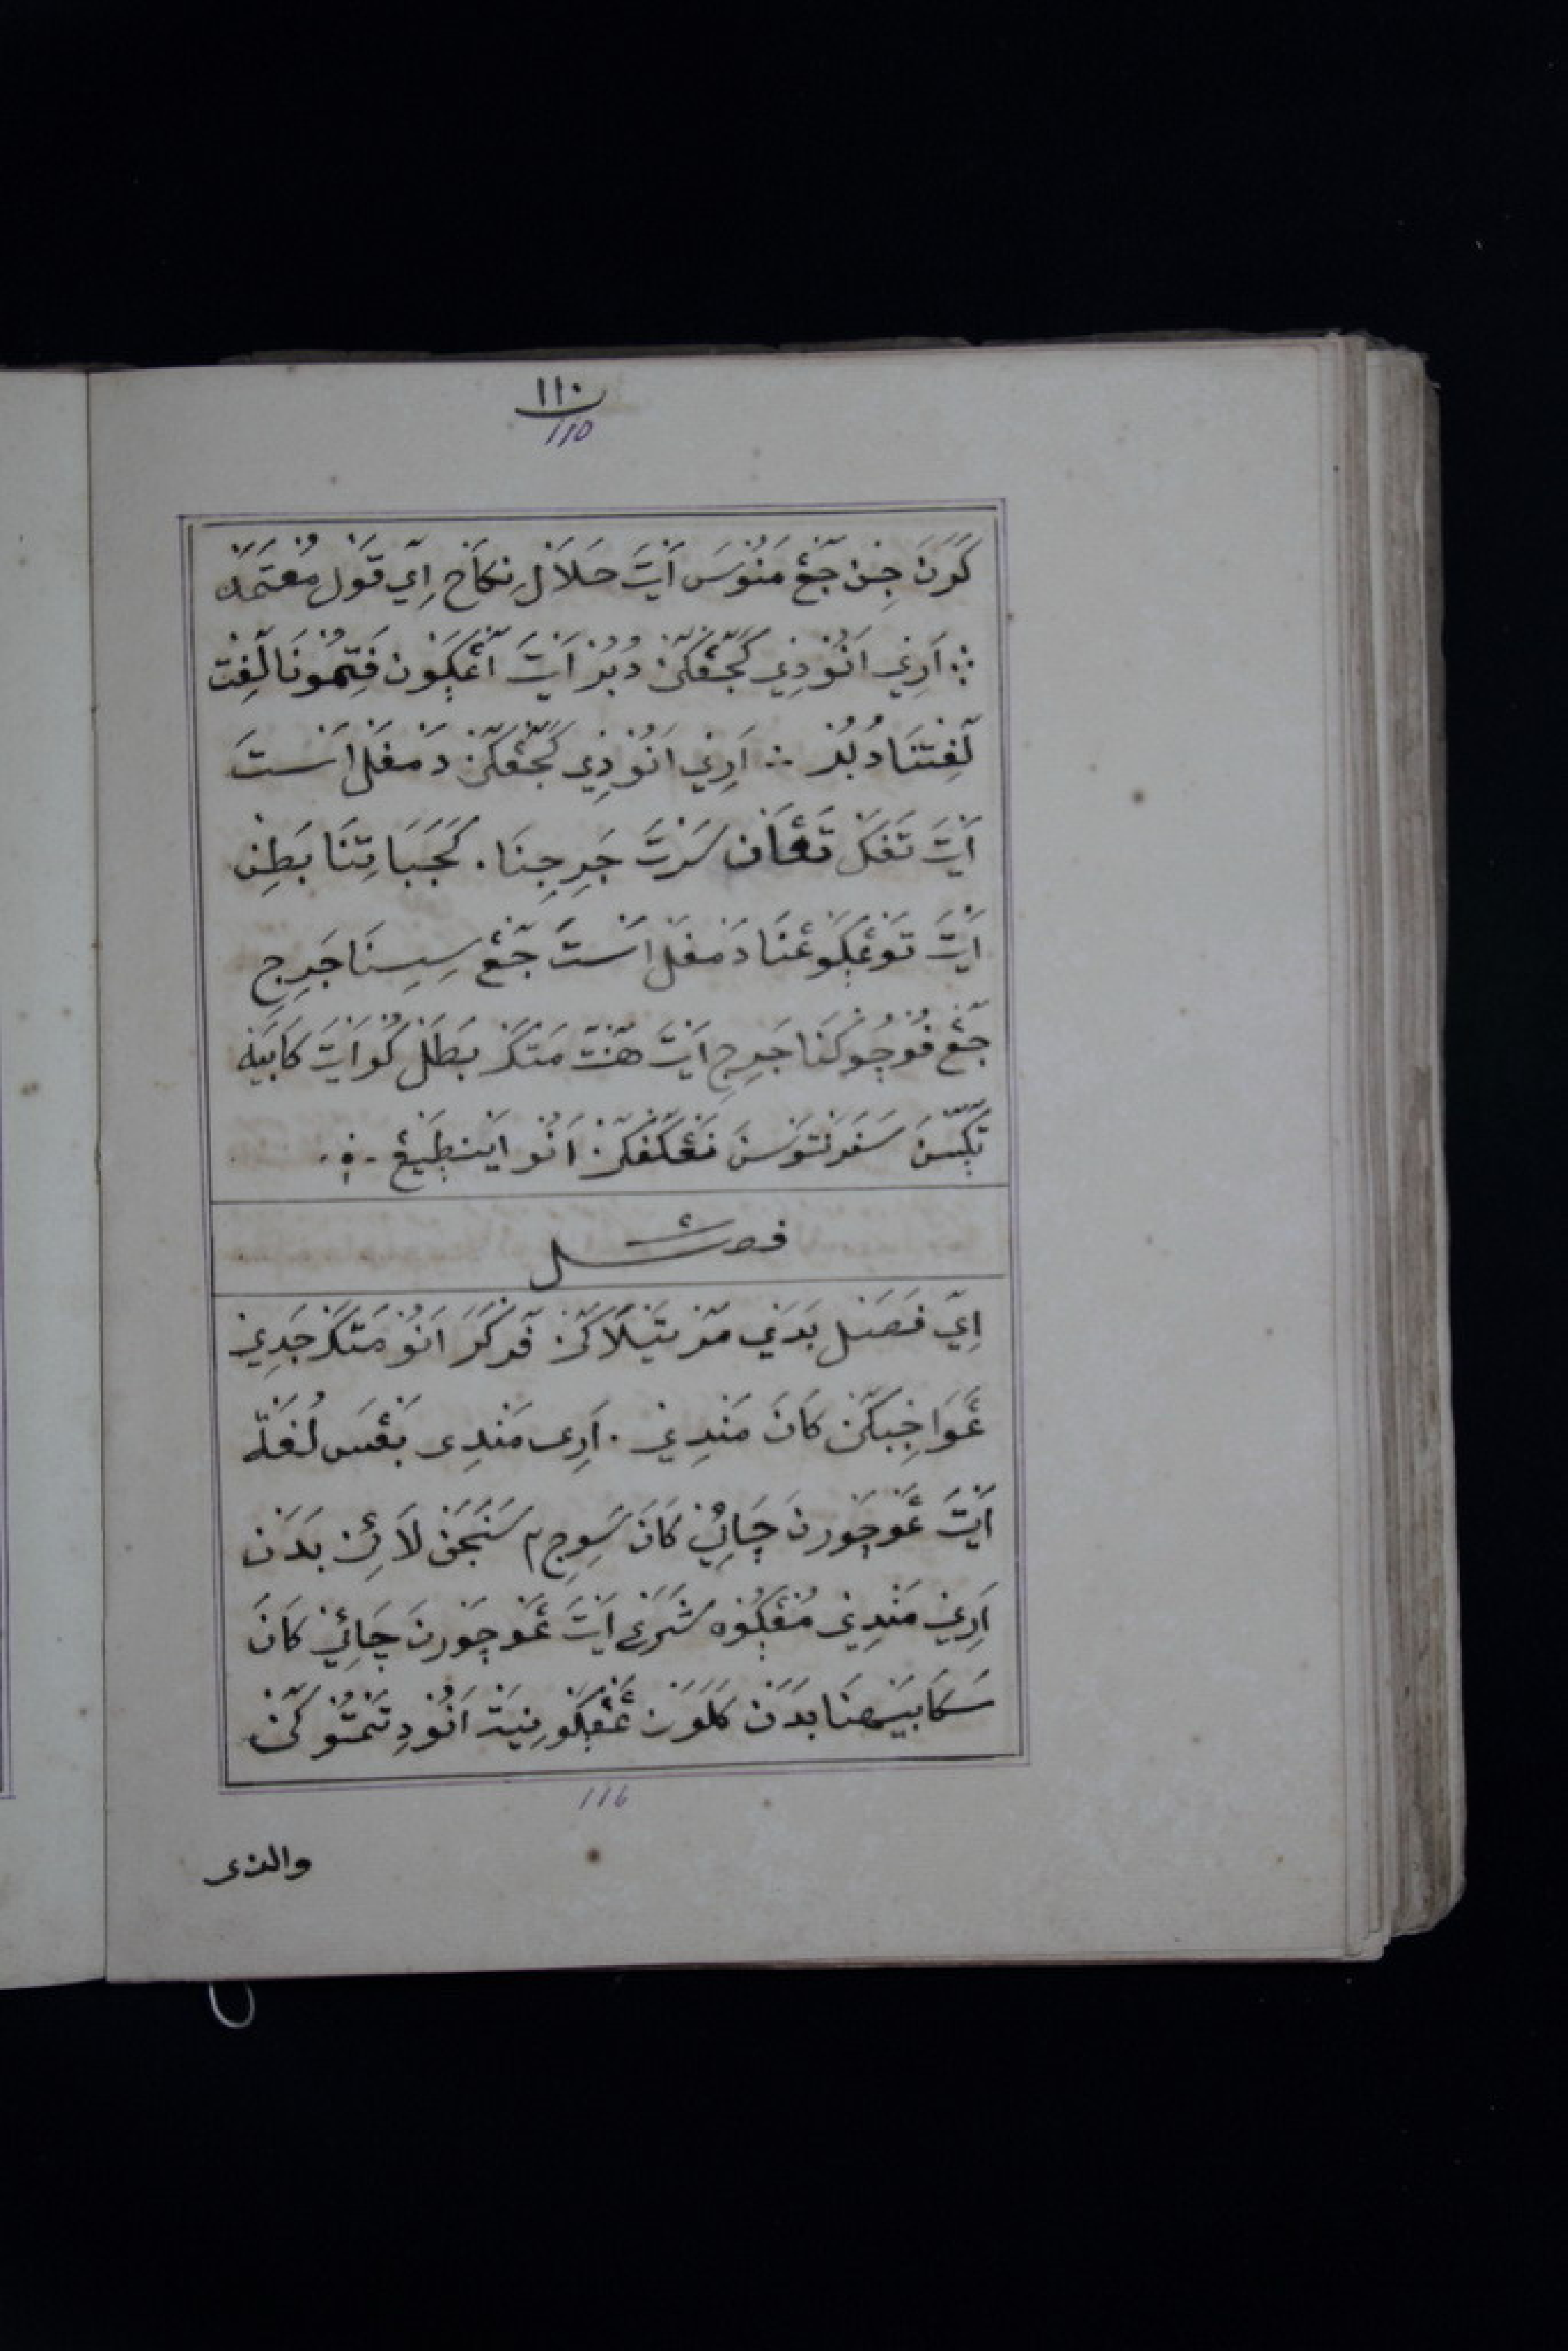 ١١٠
110
كَرَنَ جِنْ جَڠْ مَنُوْسَ اَيْتَ حَلَالْ نِكَاحْ اِيَ قَوْلْ مُعْتَمَدْ
؞ اَرِيْ اَنُوْ دِيْ كَجَڠْكَنْ دُبُرْ اَيْتَ اَڠْكَوْنْ فَتِمُوْنَا لَفِتْ
لَفِتْنَا دُبُرْ ؞ اَرِيْ اَنُوْ دِيْ كَجَڠْكَنْ دَمْفَلْ اَسْتَ
اَيْتَ تَفَكْ تَڠَانْ سَرْتَ جَرِجِنَا . كَجَبَا تِنَا بَطِنْ
اَيْتَ تَوْڠْكَوْڠْنَا دَمْفَلْ اَسْتَ جَڠْ سِسِنَا جَرِجِ
جَڠْ فُوْجُوْكْنَا جَرِجِ اَيْتَ هَنْتَ مَتَكْ بَطَلْ كُوْ اَيْتَ كَابَيْهْ
تَكَسْنَ سَفَرْتَوْسَنَ
فصل
اِيَ فَصَلْ بَدَيْ مَرْتَيْلَاكَنْ فَرْكَرَ اَنُوْ مَتَكْ جَدِيْ
ڠَوَاجِبْكَنْ كَانَ مَنْدِيْ . اَرِى مَنْدِى بَڠْسَ لُغَةْ
اَيْتَ ڠَوْچَوْرْنَ چَائِيْ كَانَ سَوِجِ٢ سَنَجَنْ لَائِنْ بَدَنْ
اَرِيْ مَنْدِيْ مُڠْكُوْهْ شَرَعْ اَيْتَ ڠَوْچَوْرْنَ چَائِيْ كَانَ
سَكَابَيْهْنَا بَدَنْ كَلَوَنْ ڠَڠْكَوْ نِيَةْ اَنُوْ دِتَنْتُوْكَنْ
116
والذى